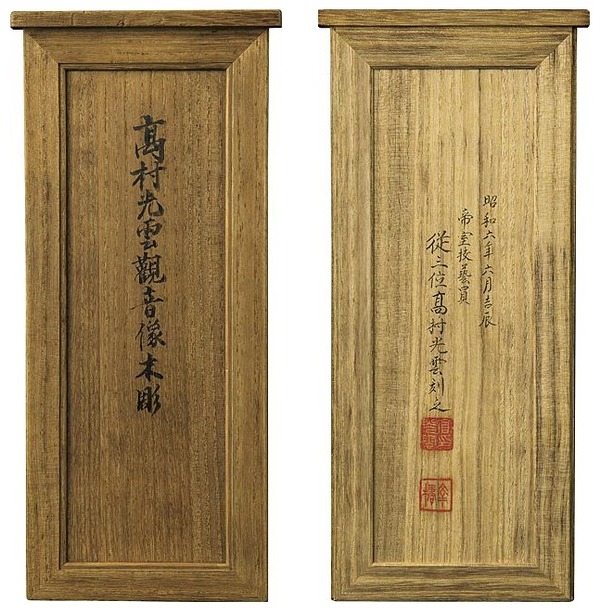 髙村光雲觀音像木彫
昭和六年六月吉辰
帝室技藝員
從三位髙村光雲刻之